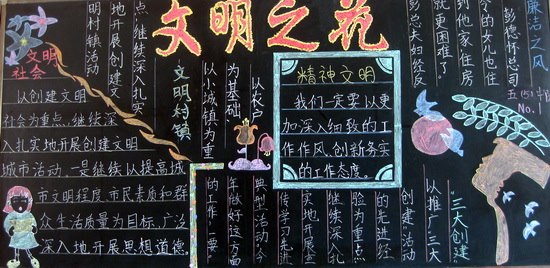 文明之花
文明
社会
以创建文明
社会为重点,继续深
入扎实地开展创建文明
城市活动,是继续以提高城
市文明程度市民素质和群
众生活质量为目标,广泛
深入地开展思想道德。
点,继续深入扎实
地开展创建文
明村镇活动
文明村镇
以农户
为基础
以小城镇为重
精神文明
我们一定要以更
加深入细致的工
作作风、创新务实
的工作态度。
廉洁之风
彭德怀总司
令的女儿也住
到他家,住房
就更困难了
彭总夫妇经反
五(5)中队
No.1
"三大创建"
以推广三大
创建"活动
的先进经
验为重点
继续深入
实地开展宣
传学习先进
典型活动今
年做好这方面
的工作,要